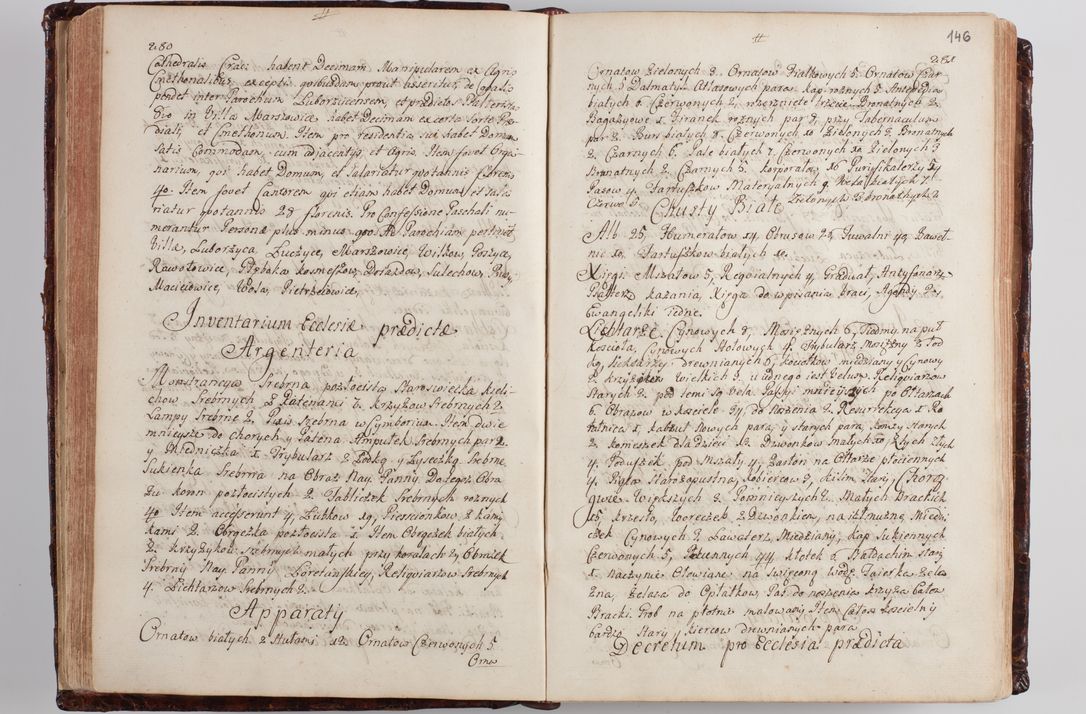 280
Cathedralis Crac: habent Decimam Manipularem ex Agris
Cmethonalibus exceptis quibusdam prout asseritur, de
pendet inter Parochum Luborzicensem, et prædictos
in Villa Marszowice habet Decimam ex certa Sorte
et Cmethonum. Item pro residentia sua habet Domum
satis Commodam, cum adjacentys, et Agris. Item fovet Orga-
narium, qui habet Domum, et Salariatur quotannis florenis
40. Item fovet Cantorem qui etiam habet Domum et Sala
riatur quotannis 28 florenis. Pro Confessione Paschali nu-
merantur Personæ plus minus 900. Ad Parochiam pertinent
Villæ, Luborzyca, Luczyce, Marszowice, Wilków, Goszyca,
Rawałowice, Sulechow,
Maciejowice, Wola,
Inventarium Ecclesiæ prædictæ
Argenteria
Monstrancya Srebrna pozłocista Staroswiecka keli-
chow Srebrnych 8 Patenami 7. krzyżow Srebrnych 2
Lampy Srebrne 2, Srebrna w Cymborium. Item dwie
mnieysze do chorych y Patena Ampułek Srebrnych para 2.
y Miedniczka 1. Trybularz 2 Łodką y Łyseczką Srebrne
Sukienka Srebrna na Obraz Nay: Panny. Do tegoż Obra
zu koron pozłocistych 2. Tabliczek Srebrnych roznych
40. Item accesserunt 4, Lubkow 19, Piersscionkow 8 kamy
kami 2. Obrączka pozłocista 1. Item Obrączek białych
2. krzyżykow srebrnych małych przy koralach 2,
Srebrny Nay: Panny Loretanskiey, Religwiarzow Srebrnych
4. Lichtarzow Srebrnych 2.
Apparaty
Ornatow białych z Stułami 12. Ornatow Czerwonych 5
Orna
146
281
Ornatow Zielonych 3. Ornatow Fiałkowych 5. Ornatow Czar
nych 5 Dalmatyk Atłasowych para. kap roznych 5 Antepedia
białych 6. Czerwonych 2, Bronatnych 2
1 Firanek roznych par 8, przy Tabernaculum
par 2. Burs białych 8 Czerwonych 10 Zielonych 2 Bronatnych
2. Czarnych 6. Pale białych 7 Czerwonych 10 Zielonych 3
Bronatnych 2. Czarnych 5. korporałow 16 Puryfikaterzy 54
Pasow 4. Materyalnych 9. białych 7.
Czerwo 5. Zielonych 2 bronatnych 2
Chusty Białe
Alb 25, Humerałow 14, Obrusow 23, Tuwalni 49,
nic 10, białych 10.
Xięgi Mszałow 5, Reqvialnych 4, Graduał, Antyfonarz
Psałterz kazania, Xięga do wpisania Braci, Agendy 2
Ewangeliki iedne.
Lichtarze Cynowych 8, Mosiężnych 6, na puł
kościoła, Cynowych Stołowych 4. Trybularz Mosiężny z Łod
ką, drewnianych 6, kociołkow miedziany y Cynowy
2. krzyżow wielkich 3. u iednego iest Velum Religwiarzow
Starych 2. pod temi są vela. Passyi mnieyszych po Ołtarzach
6. Obrazow w kosciele 24, do nozenia 2. Resurrekcya 1.
1, kabłuk Nowych para, y starych para, komży starych
2 komieszek dla dzieci 12. Dzwonkow małych 10
4. Poduszek pod Mszały 4. Zasłon na Ołtarze płociennych
4. Staro zapustna, kobiercow 3, kilim Stary, Chorą
gwie Większych 2 Pomnieyszych 2. Małych Brackich
15, krzesło, Woreczek z Dzwonkiem, na iałmużnę Miedni
czek Cynowych 2 Lawaterz Miedziany, kap Sukiennych
Czerwonych 5, 44 6 Baldachim stary
1. naczynie Ołowiane na święconą wodę Fajerka żela
zna, żelaza do Opłatkow Pas do noszenia krzyża Całow
Bracki. Grob na płotnie malowany Item Całow koscielny
bardzo Stary drewnianych para
Decretum pro Ecclesia prædicta